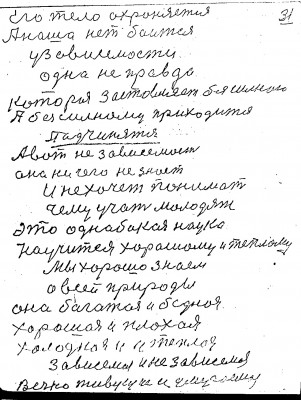 31
Его тело охроняется
А наша нет боится
узависиемости
одна не правда
Которая Заставляет бясильного
А безсильному приходится
Падчинятся
Авот не зависемост
она ни чего не знает
И нехочет понимат
чему учат молодяж
Это однабакая наука
Научится харашому и теплому
Мы хорошо знаем
о всей природы
она багатая и бедная
хорошая и плохая
холодная и теплая
Зависемя и не зависемя
Вечно живучи и